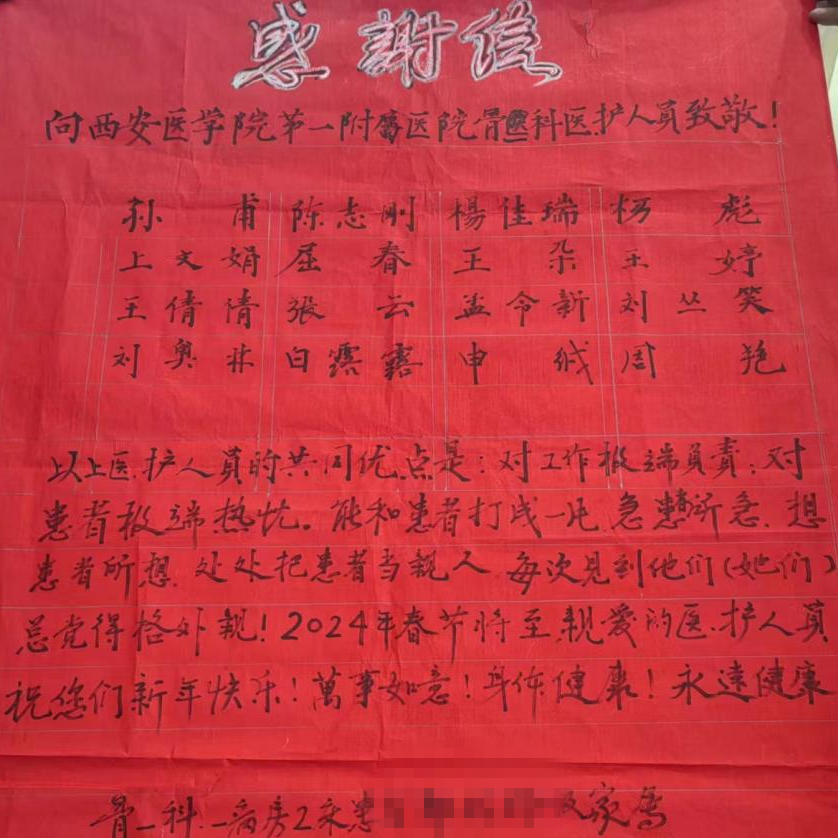 感謝信
向西安医学院第一附属医院骨科医护人员致敬!
孙甫 陈志刚 楊佳瑞 杨彪
上文娟 屈春 王朵 王婷
王倩倩 張云 孟令新 刘丛笑
刘奥林 白露露 申 周艳
以上医护人员的共同优点是:对工作极端負责;对
患者极端热忱。能和患者打成一片,急患者所急,想
患者所想,处处把患者当親人,每次见到他们(她们)
总觉得格外親!2024年春节将至,親爱的医护人員
祝您们新年快乐!萬事如意!身体健康!永遠健康
骨一科.一病房2床患 家属